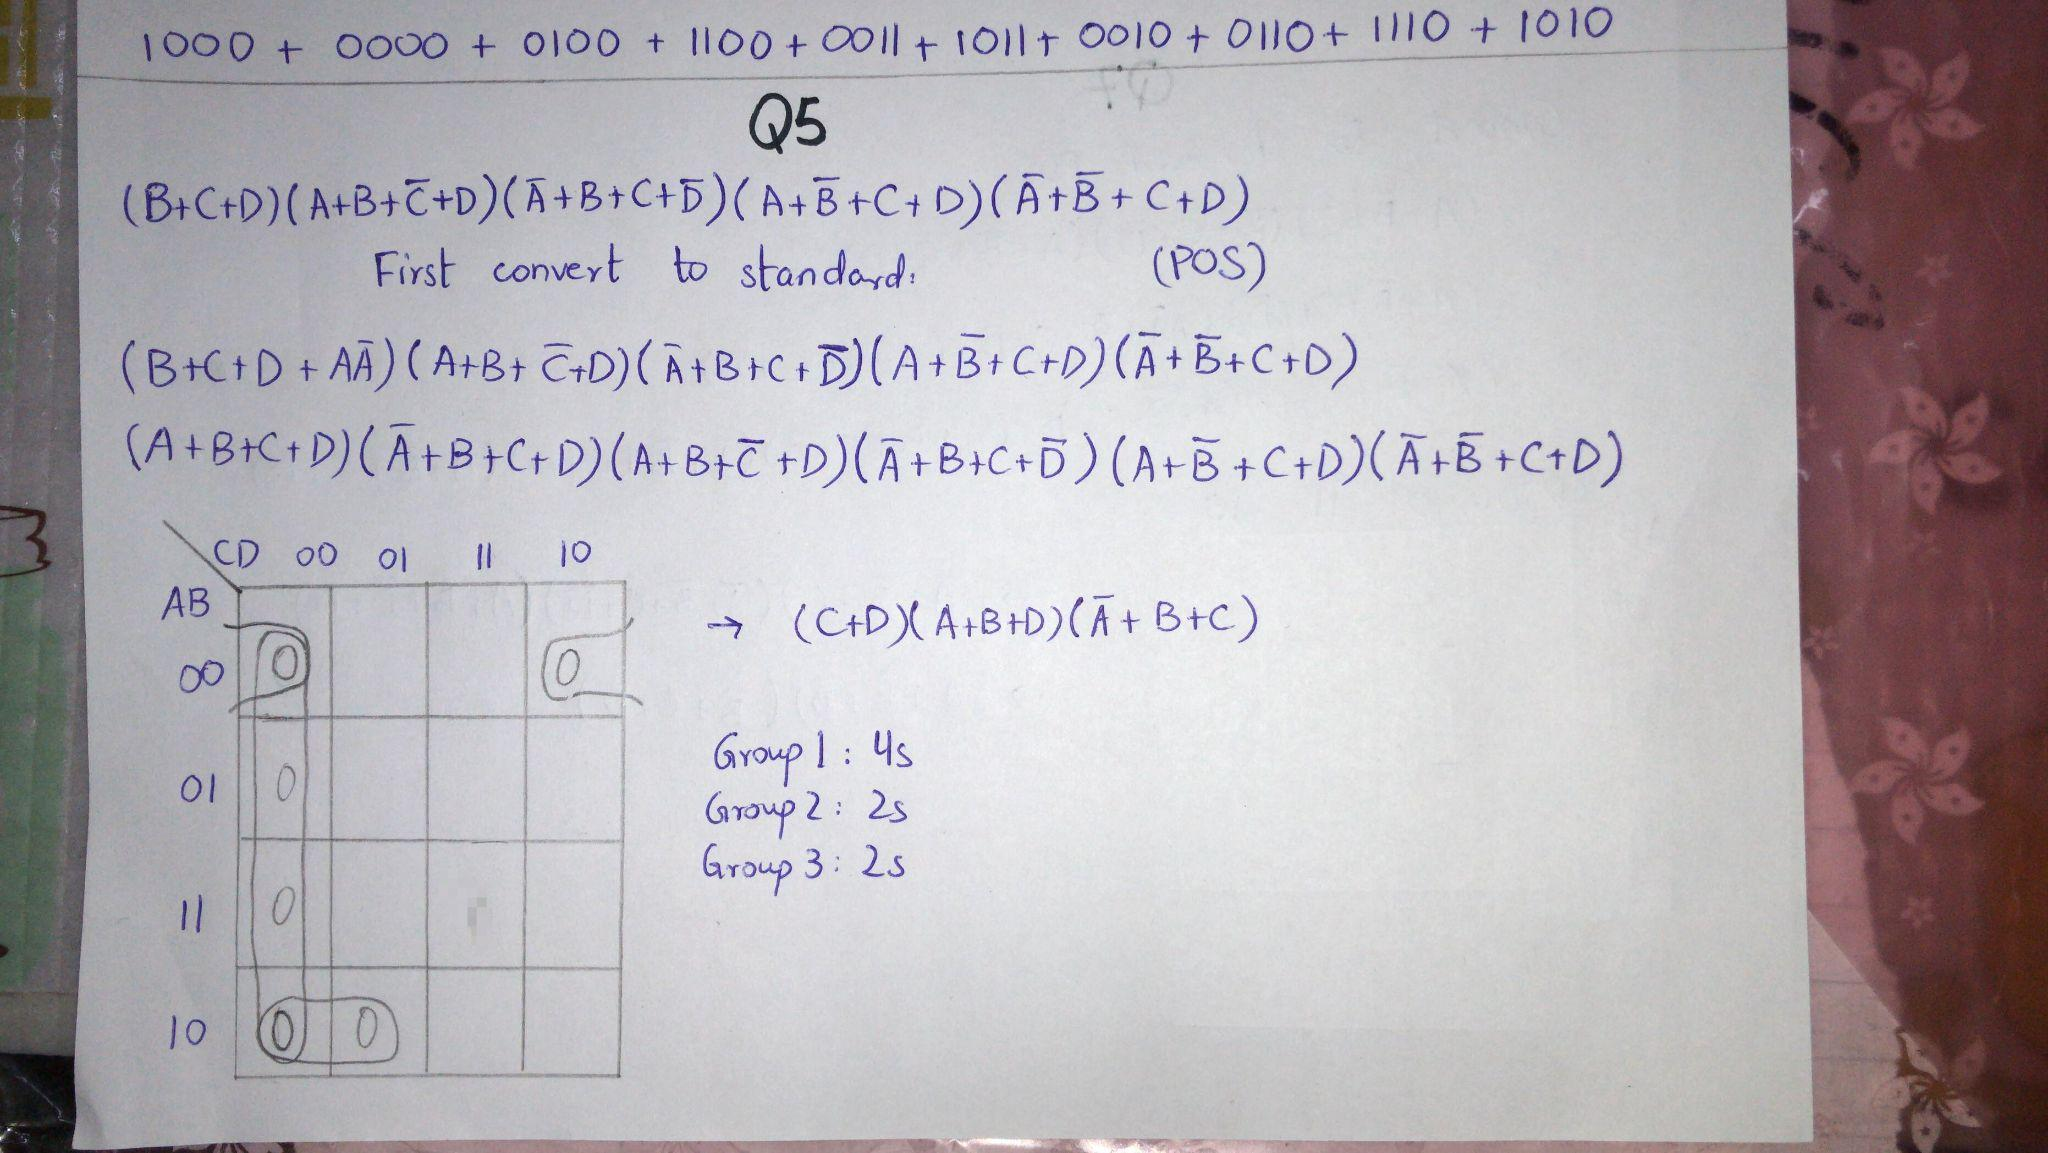 1000 + 0000 + 0100 + 1100 + 0011 + 1011 + 0010 + 0110 + 1110 + 1010
Q5
(B+C+D)(A+B+C̅+D)(A̅+B+C+D̅)(A+B̅+C+D)(A̅+B̅+C+D)
First convert to standard: (POS)
(B+C+D+AA̅)(A+B+C̅+D)(A̅+B+C+D̅)(A+B̅+C+D)(A̅+B̅+C+D)
(A+B+C+D)(A̅+B+C+D)(A+B+C̅+D)(A̅+B+C+D̅)(A+B̅+C+D)(A̅+B̅+C+D)
CD 00 01 11 10
AB
→ (C+D)(A+B+D)(A̅+B+C)
00 0 0
Group 1: 4s
01 0
Group 2: 2s
Group 3: 2s
11 0
10 0 0